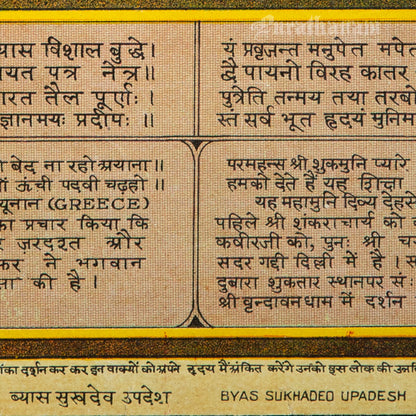 Surathanaju
यास विशाल बुद्धे।
यत पत्र नेत्र॥
रत तैल पूर्णः।
ज्ञानमयः प्रदीपः॥
यं प्रव्रजन्त मनुपेत मपेत
द्वै पायनो विरह कातर
पुत्रेति तन्मय तया तरवो
स्तं सर्व भूत हृदयं मुनिम
बेद ना रहो अयाना॥
ऊंची पदवी चढ़हो॥
यूनान (GREECE)
का प्रचार किया कि
ज़रदश्त और
कर ने भगवान
की है।
परमहन्स श्री शुकमुनि प्यारे
हमको देते हैं यह शिक्षा
यह महामुनि दिव्य देहसे
पहिले श्री शंकराचार्य को
कबीरजी को, पुनः श्री च
सदर गद्दी दिल्ली में है। स
दुबारा शुकतार स्थानपर सं:
श्री वृन्दावनधाम में दर्शन
का दर्शन कर कर इन वाक्यों को अपने हृदय मैं अंकित करेंगे उनको इस लोक की उन्नति
ब्यास सुखदेव उपदेश BYAS SUKHADEO UPADESH